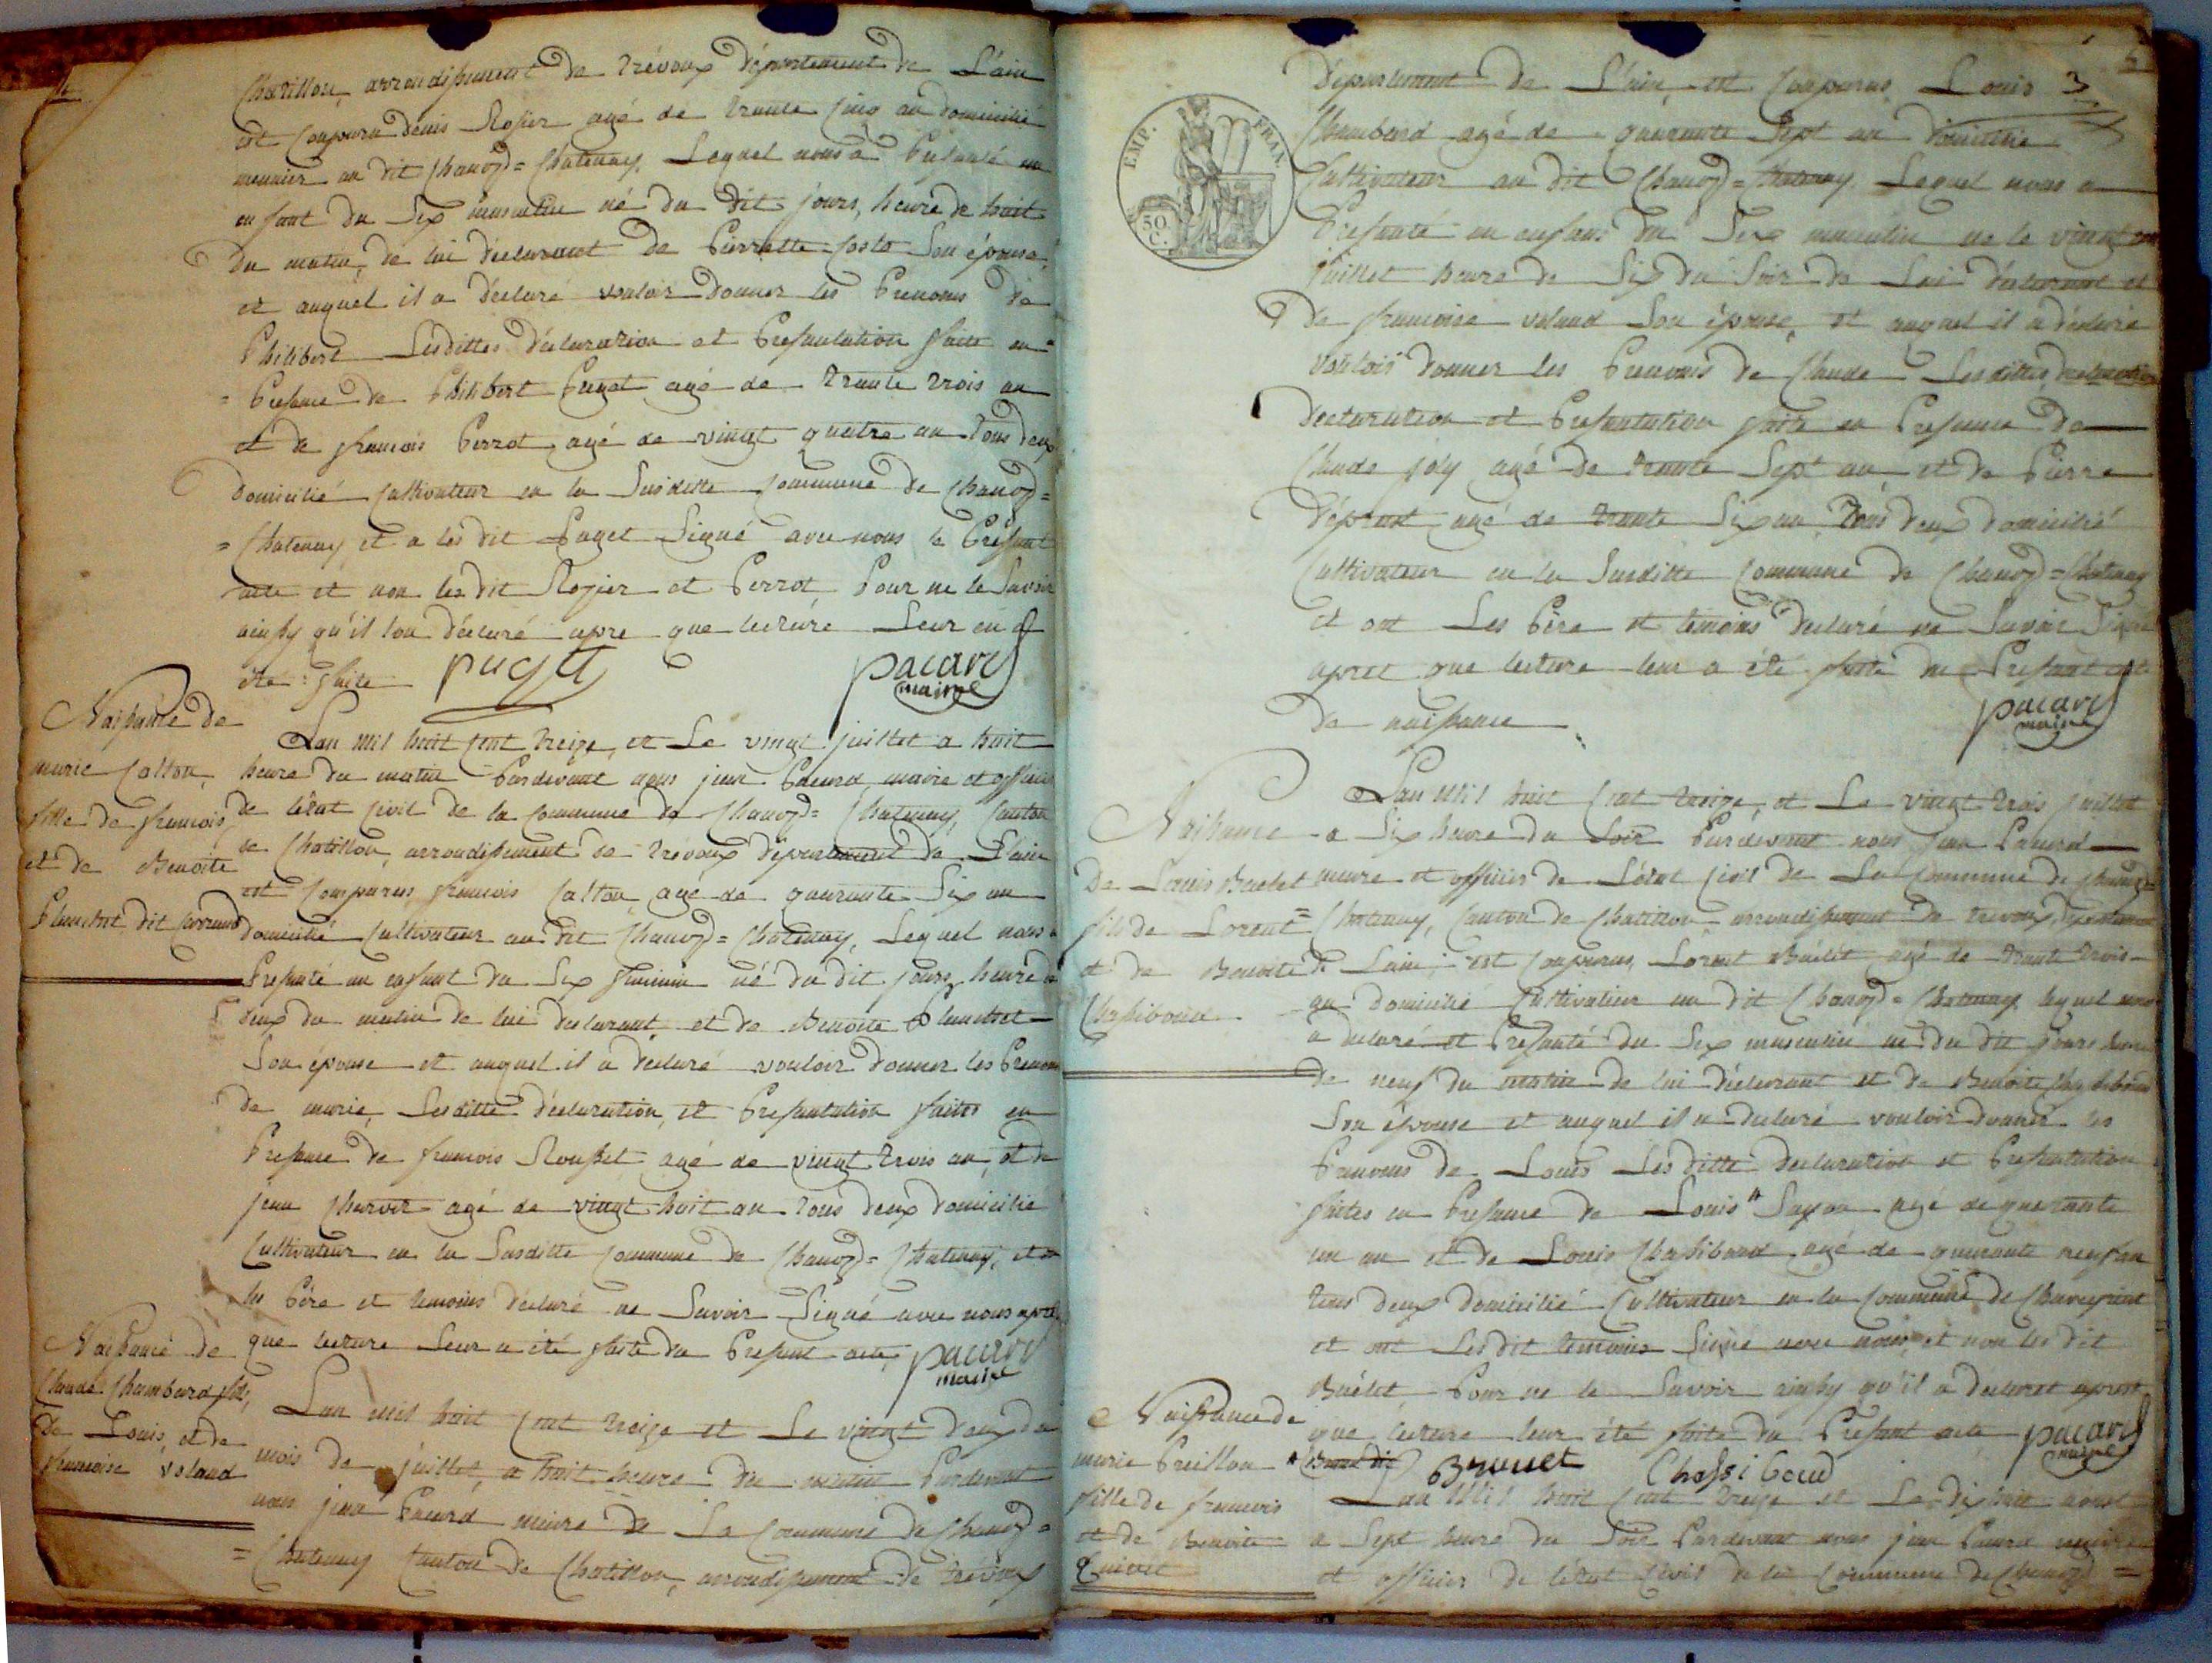 Chatillon, arrondissement de Trévoux département de L'ain
est Comparu denis Rosier agé de trante cinq an domicilié
meunier au dit Chanoz=Chatenay, Lequel nous a Presanté un
enfant du Sex masculin né du dit jours, heure de huit
du matin, de lui déclarant de Pierrette Coste Son épouse,
et auquel il a déclaré vouloir donner les Prenoms de
Philibert Lesdittes déclaration et Presantation faite en=
=Presance de Philibert Puget agé de trante trois an
et de francois Perrot, agé de vingt quatre an Tous deux
domicilié Cultivateur en la Susditte Commune de Chanoz=
=Chatenay et a les dit Puget Signé avec nous le Présant
acte et non les dit Rosier et Perrot, Pour ne le Savoir
ainsy qu'il l'on déclaré apre que lecture Leur en a
été faite
puget
pacard
maire
Naissance de
marie Callon,
fille de francois
et de Benoite
Planchet dit Carrand
Lan mil huit Cent treize, et Le vingt juillet a huit
heure du matin Pardevant nous jean Pacard, maire et officier
de létat Civil de la Commune de Chanoz=Chatenay, Canton
de Chatillon, arrondissement de Trévoux département de L'ain
est Comparus francois Callon, agé de quarante Six an
domicilié Cultivateur au dit Chanoz=Chatenay, Lequel nous a
Presanté un enfant du Sex feminin né du dit jours, heure de
deux du matin de lui declarant et de Benoite Planchet
Son épouse et auquel il a déclaré vouloir donner les Prenoms
de marie, Lesditte déclaration, et Presantation faites en
Presance de francois Rousset agé de vingt trois an, et de
jean Charvet agé de vingt huit an Tous deux domicilié
Cultivateur en la Susditte Commune de Chanoz=Chatenay, et on
les Père et temoins déclaré ne Savoir Signé avec nous apre
que lecture Leur a été faite du Presant acte,
pacard
maire
Naissance de
Claude Chambard fils,
de Louis, et de
francoise volaud
Lan mil huit Cent treize et Le vingt deux du
mois de juillet, a huit heure du matin Pardevant
nous jean Pacard maire de La Commune de Chanoz=
=Chatenay Canton de Chatillon, arrondissement de trévoux
3
EMP. FRAN.
50 C.
Département de L'ain, est Comparus Louis
Chambard agé de quarante Sept an domicilié
Cultivateur au dit Chanoz=Chatenay Lequel nous a
Presanté un enfans du Sex masculin né le vingt un
juillet heure de Six du Soir de Lui déclarant et
de francoise volaud Son épouse, et auquel il a déclaré
vouloir donner les Prenoms de Claude Lesdittes
declaration et Presantation faite en Presance de
Claude joly agé de trante Sept an, et de Pierre
agé de trante Six an Tous deux domicilié
Cultivateur en la Susditte Commune de Chanoz=Chatenay
et ont Les Père et témoins declaré ne Savoir Signé
apret que lecture leur a été faite du Presant acte
de naissance
pacard
maire
Naissance
De Louis Buelet
fils de Lorent
et de Benoite
Chassiboud
Lan Mil huit Cent treize, et Le vingt trois juillet
a Six heure du Soir Pardevant nous jean Pacard
maire et officier de L'état Civil de La Commune de Chanoz=
=Chatenay, Canton de Chatillon arrondissement de trevoux, département
de Lain, est Comparus, Lorent Buélet agé de trante trois
an domicilié Cultivateur au dit Chanoz=Chatenay lequel nous
a declaré et Presanté du Sex masculin né du dit jours heure
de neuf du matin de lui déclarant et de Benoite Chassiboud
Son épouse et auquel il a declaré vouloir donner les
Prenoms de Louis Lesditte declaration et Presantation
faites en Presance de Louis agé de quarante
un an et de Louis Chassiboud agé de quarante neuf an
tous deux domicilié Cultivateur en la Commune de Chaveyriat
et ont Lesdit témoins Signé avec nous, et non les dit
Buélet Pour ne le Savoir ainsy qu'il a declaret apret
que lecture leur été faite du Presant acte
pacard
maire
Brouet
Chassiboud
Naissance de
marie Preillon
fille de francois
et de Benoite
Lan Mil huit Cent treize et Le dix huit aoust
a Sept heure du Soir Pardevant nous jean Pacard maire
et officier de létat Civil de la Commune de Chanoz=